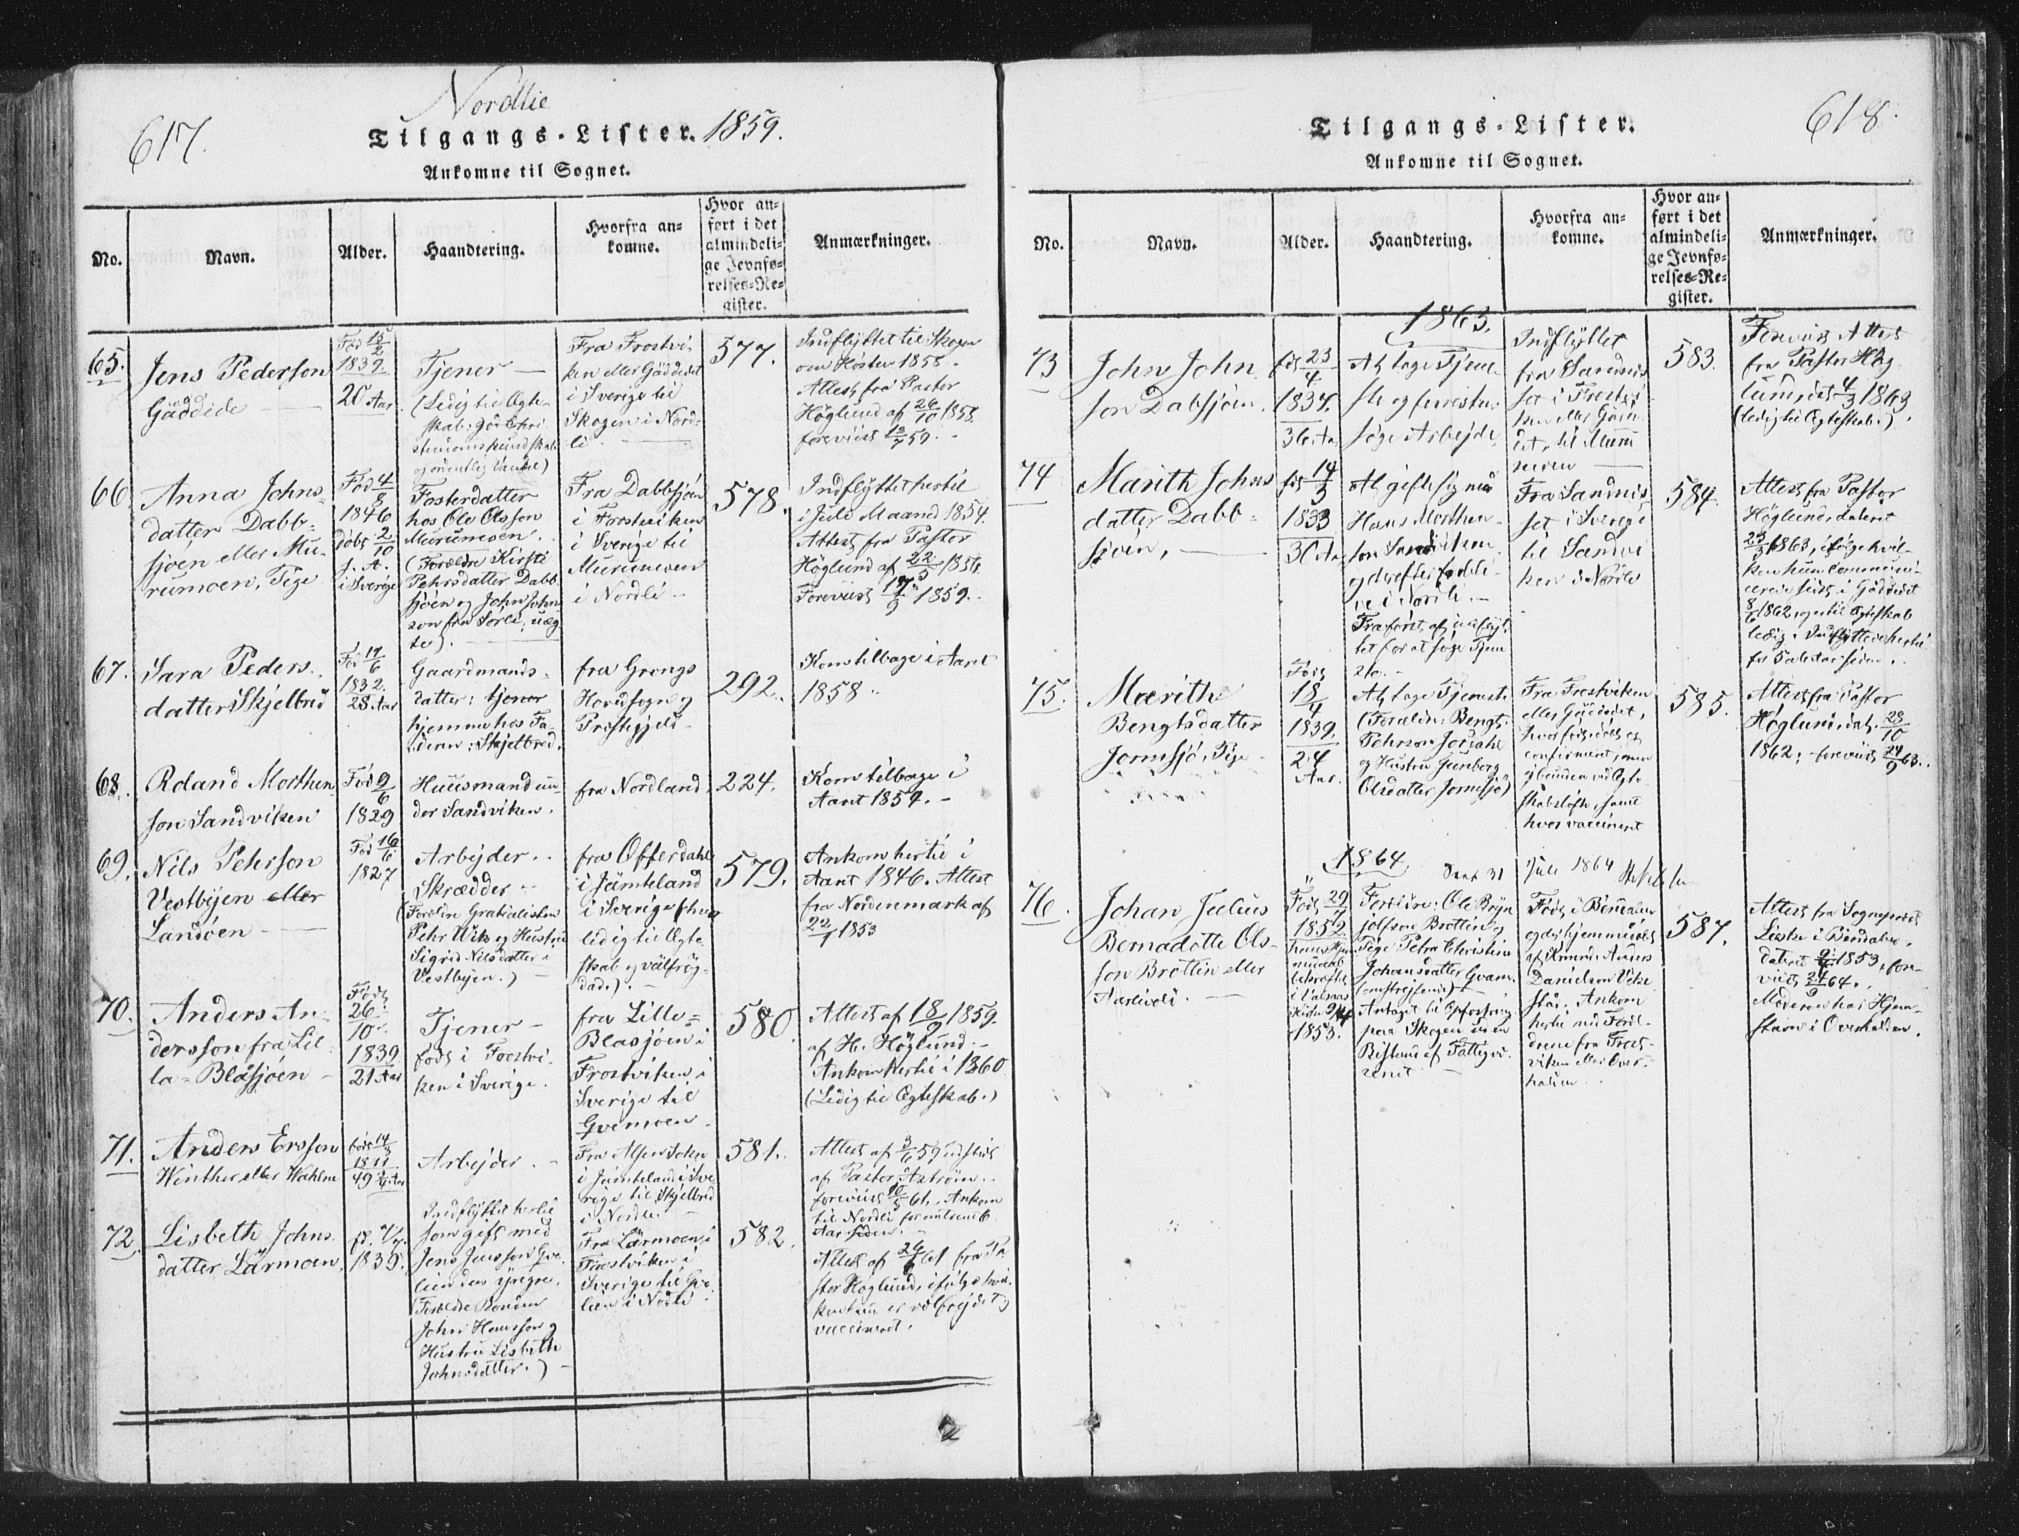 Nordlie
617.
Tilgangs-Lister. 1859.
Ankomne til Sognet.
No.
Navn.
Alder.
Haandtering.
Hvorfra an=
komne.
Hvor an=
ført i det
almindeli=
ge Jevnfø=
relses-Re=
gister.
Anmærkninger.
65.
Jens Pederson
Gäddide
Fød 15/2
1839
20 Aar
Tjener
(Ledig til Ægte-
skab; god Chri-
stendomskundskab
og ordentlig Vandel)
Fra Frostvi-
ken eller Gäddedet
i Sverige til
Skogen i Nord-
li
577.
Indflyttet til Skogen
om Høsten 1858.
Attest fra Pastor
Höglund af 26/10 1858.
foreviist 59.
66.
Anna Johns-
datter Dabb-
sjöen eller Mu-
rumoen, Pige
Fød 4/8
1846
døbt 2/10
s. A.
i Sverige
Fosterdatter
hos Ole Olsson
Murumoen.
(Forældre Kirsti
Pehrsdatter Dabb-
sjöen og John John-
son fra Sørli, uæg-
te).
Fra Dabbsjöen
i Frostviken
i Sverige til
Murumoen
i Nordli
578.
Indflyttet hertil
i Juli Maaned 1854.
Attest fra Pastor
Höglund af 22/5 1856.
Foreviist 17/9 1859.
67.
Sara Peders-
datter Skjelbred
Fød 19/6
1832.
28 Aar
Gaardmands-
datter; tjener
hjemme hos Fa-
deren; Skjelbred.
fra Grongs
Hovedsogn og
Prestegjeld
292.
Kom tilbage i Aaret
1858
68.
Roland Morthen-
son Sandviken
Fød 9/6
1829
Huusmand un-
der Sandviken.
fra Nordland
224.
Kom tilbage i
Aaret 1854.
69.
Nils Pehrson
Vestbyen eller
Landöen
Fød 16/6
1827
Arbejder.
Skrædder
(Forældre Gratialisten
Pehr Wik og Hustru
Sigrid Nilsdatter i
Vestbyen.)
fra Offerdahl
i Jämteland
i Sverige (hvor
ledig til Ægte-
skab og välfräg-
dad.)
579.
Ankom hertil i
Aaret 1846. Attest
fra Nordenmark af
22/1 1853
70.
Anders An-
dersson fra Lil-
la-Blåsjöen
Født
26
10
1839
21 Aar
Tjener
født i Frostvi-
ken i Sverige.
fra Lille-
Blåsjöen i
Frostviken i
Sverige til
Gvemoen.
580
Attest af 18/9 1859.
af H. Höglund.
Ankom hertil i 1860
(Ledig til Ægteskab.)
71.
Anders Ersson
Winther eller Wahlne
født 14/3
1811
49 Aar
Arbejder.
Fra Alsen Soken
i Jämteland i Sve-
rige til Skjelbred
i Nordli
581.
Attest af 3/6 59 udstedt
af Pastor Aström.
foreviist 61. Ankom
til Nordli for omtrent 6
Aar siden.
72.
Lisbeth Johns-
datter Lärmoen
1839.
Indflyttet hertil
som gift med
Jens Jensson Gve-
lien den yngre.
(Forældre Bonden
John Hansson og
Hustru Lisbeth
Johnsdatter.)
Fra Lärmoen i
Frostviken i
Sverige til Gve-
lien i Nordli
582.
Attest af 26/6 61 fra Pa-
stor Höglund, ifølge hvil-
ken hun er välfrejdet og
vaccineret.
618.
Tilgangs-Lister.
Ankomne til Sognet.
No.
Navn.
Alder.
Haandtering.
Hvorfra an=
komne.
Hvor an=
ført i det
almindeli=
ge Jevnfø=
relses-Re=
gister.
Anmærkninger.
1863.
73
John John-
son Dabsjöen.
født 23/4
1834.
At tage Tjene-
ste
søge Arbejde
Indflyttet
fra Sandnäs-
set i Frostvi-
ken eller Gädde-
det, til Muru-
moen
583.
Foreviist Attest
fra Pastor Hög-
lund, dat. 4/3 1863.
(ledig til Ægteskab.)
74
Marith Johns-
datter Dabb-
sjöen,
født 14/3
1833
30 Aar
At gifte sig med
Hans Morthen-
son Sandviken
og derefter forbli-
ve i Nordli.
Fra først af indflyt-
tet for at søge Tjene-
ste.
Fra Sandnäs-
set i Sverige
til Sandvi-
ken i Nordli
584.
Attest fra Pastor
Höglund, dateret
1863, ifølge hvil-
ken hun communi-
cerede sidst i Gäddedet
8/6 1862, og er til Ægteskab
ledig. Indflyttede hertil
for 5 a 6 Aar siden.
75.
Marith
Bengtsdatter
Jormsjö, Pige
Født
18/4
1839.
24
Aar.
At tage Tjeneste
(Forældre: Bengt
Pehrson Jorsahl
og Hustru Gunborg
Olsdatter Jormsjö)
Fra Frostviken
eller Gäddedet,
hvor født, døbt og
confirmeret, men
ubunden ved Ægte-
skabsløfte, samt
hvor vaccineret
585.
Attest fra Pastor
Höglund, dat. 28/10
1862; foreviist 24/9 63.
1864
31 Juli 1864
76.
Johan Julius
Bernadotte Ols-
son Bröttin eller
Aasevoli.
Født 29
1852.
9/4
1853.
Forældre: Ole Bryn-
jolfson Bröttin og
Pige Petra Christine
Johansdatter Gvam.
(omstrejfende)
Antaget til Opfostring
paa Skogen med
Bistand af Fattigvæ-
senet
Født i Bindalen
og døbt hjemmedøbt
af Amund Anders
Danielson
Ankom
hertil med Foræl-
drene fra Frost-
viken eller Over-
halden
587.
Attest fra Sognepræst
i Bindalen.
dateret 1853, fore-
viist 24/9 64.
Moderen har Hjem-
stavn i Overhalden.